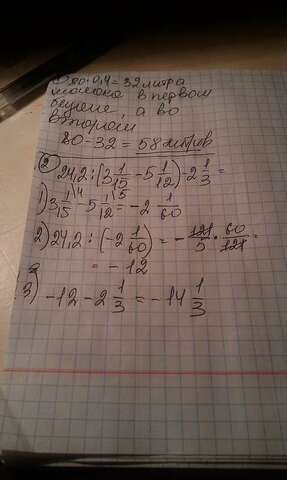 ① 80·0,4=32 литра
молока в первом
бидоне, а во
втором
80-32 = 58 литров
② 24,2:(3 1/15 - 5 1/12) - 2 1/3 =
1) 3 1/15 ⁴ - 5 1/12 ⁵ = -2 1/60
2) 24,2 : (-2 1/60) = - 121/5 · 60/121 =
= -12
3) -12 - 2 1/3 = -14 1/3